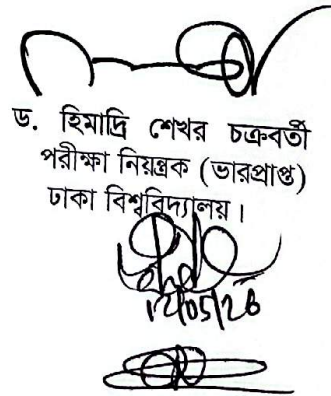 ড. হিমাদ্রি শেখর চক্রবর্তী
পরীক্ষা নিয়ন্ত্রক (ভারপ্রাপ্ত)
ঢাকা বিশ্ববিদ্যালয়।